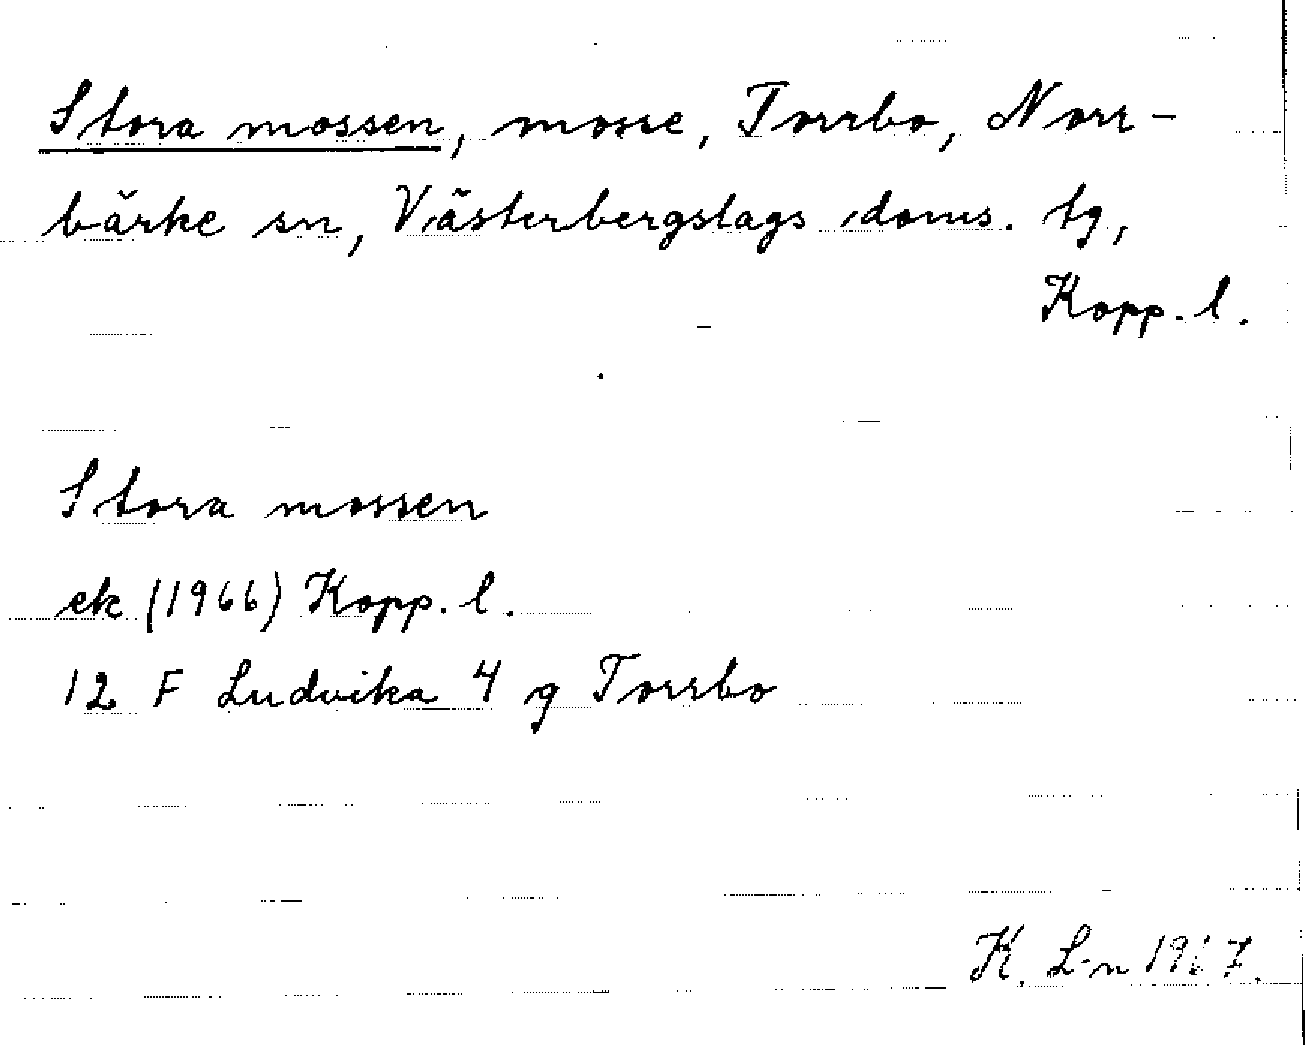 Stora mossen, mosse, Torrbo, Norr-
bärke sn, Västerbergslags doms. tg,
Kopp. l.
Stora mossen
ek (1966) Kopp. l.
12 F Ludvika 4 g Torrbo
K. L-n 1967.